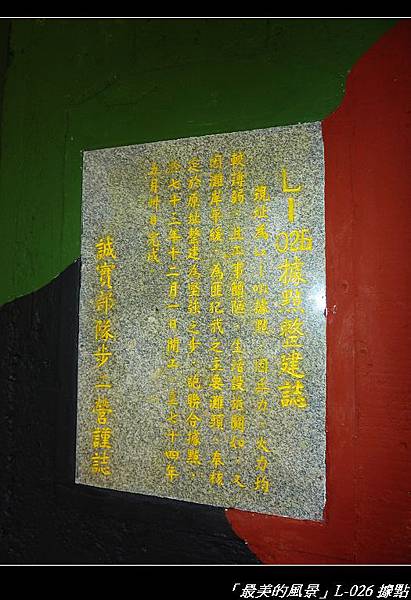 L-026據點整建誌
現址為L-026據點,因兵力、火力均
較薄弱,且工事簡陋,生活設施闕如,又
因灘岸平緩,為匪犯我之主要灘頭,奉核
定於原址整建為堅強之步、砲聯合據點,
於七十三年十二月一日開工,至七十四年
五月卅日完成
誠實部隊步一營謹誌
「最美的風景」L-026 據點